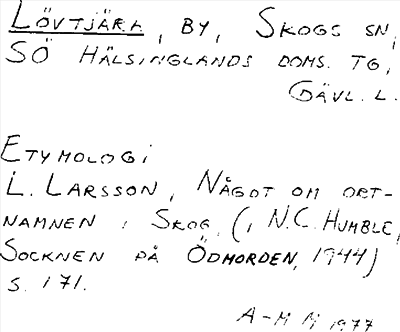 LÖVTJÄRA, BY, SKOGS SN,
SÖ HÄLSINGLANDS DOMS. TG,
GÄVL. L.
ETYMOLOGI
L. LARSSON, NÅGOT OM ORT-
NAMNEN I SKOG, (I N.C. HUMBLE,
SOCKNEN PÅ ÖDMORDEN, 1944)
S. 171.
A-M M 1977